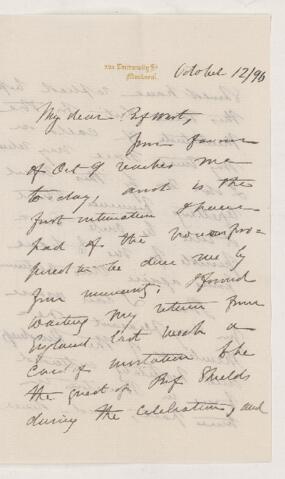 University St
Montreal.
October 12/96
My dear Prof West,
Your favour
of Oct 9 reaches me
to day, and is the
first intimation I have
had of the honour pro-
posed to be done me by
your university. I found
waiting my return from
England last week a
card of invitation to be
the guest of Prof Shields
during the celebration, and